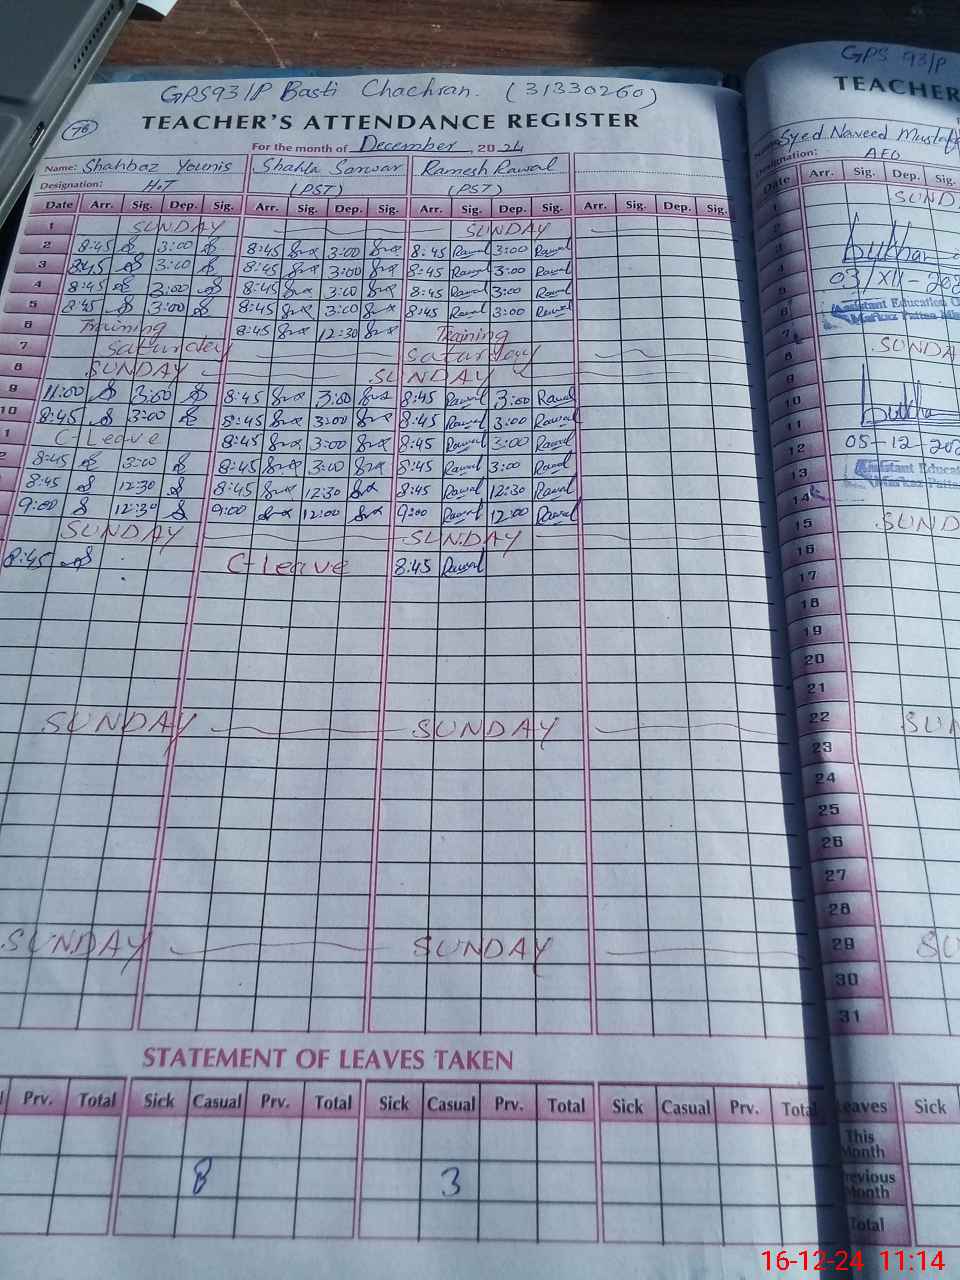 GPS 93/P Basti Chachran. (31330260)
76
TEACHER'S ATTENDANCE REGISTER
For the month of December, 2024
Name: Shahbaz Younis Shahla Sarwar Ramesh Rawal
Designation: H.T (PST) (PST)
Date Arr. Sig. Dep. Sig. Arr. Sig. Dep. Sig. Arr. Sig. Dep. Sig. Arr. Sig. Dep. Sig.
1 SUNDAY SUNDAY
2 8:45 3:00 8:45 3:00 8:45 Rawal 3:00 Rawal
3 8:45 3:00 8:45 3:00 8:45 Rawal 3:00 Rawal
4 8:45 3:00 8:45 3:00 8:45 Rawal 3:00 Rawal
5 8:45 3:00 8:45 3:00 8:45 Rawal 3:00 Rawal
6 Training 8:45 12:30 Training
7 Saturday Saturday
8 SUNDAY SUNDAY
9 11:00 3:00 8:45 3:00 8:45 Rawal 3:00 Rawal
10 8:45 3:00 8:45 3:00 8:45 Rawal 3:00 Rawal
1 C-Leave 8:45 3:00 8:45 Rawal 3:00 Rawal
2 8:45 3:00 8:45 3:00 8:45 Rawal 3:00 Rawal
8:45 12:30 8:45 12:30 8:45 Rawal 12:30 Rawal
9:00 12:30 9:00 12:00 9:00 Rawal 12:00 Rawal
SUNDAY SUNDAY
8:45 C-Leave 8:45 Rawal
SUNDAY SUNDAY
SUNDAY SUNDAY
STATEMENT OF LEAVES TAKEN
Prv. Total Sick Casual Prv. Total Sick Casual Prv. Total Sick Casual Prv. Total
8 3
GPS 93/P
TEACHER
Syed Naveed Mustafa
Designation: AEO
Date Arr. Sig. Dep. Sig.
1 SUND
2
3
4
5 03/XII-202
6 Assistant Education
7 Markaz Pattan
8 SUNDA
9
10
11
12 05-12-202
13 Assistant Educat
14 Markaz Patta
15 SUND
16
17
18
19
20
21
22 SUN
23
24
25
26
27
28
29 SU
30
31
Leaves Sick
This Month
Previous Month
Total
16-12-24 11:14